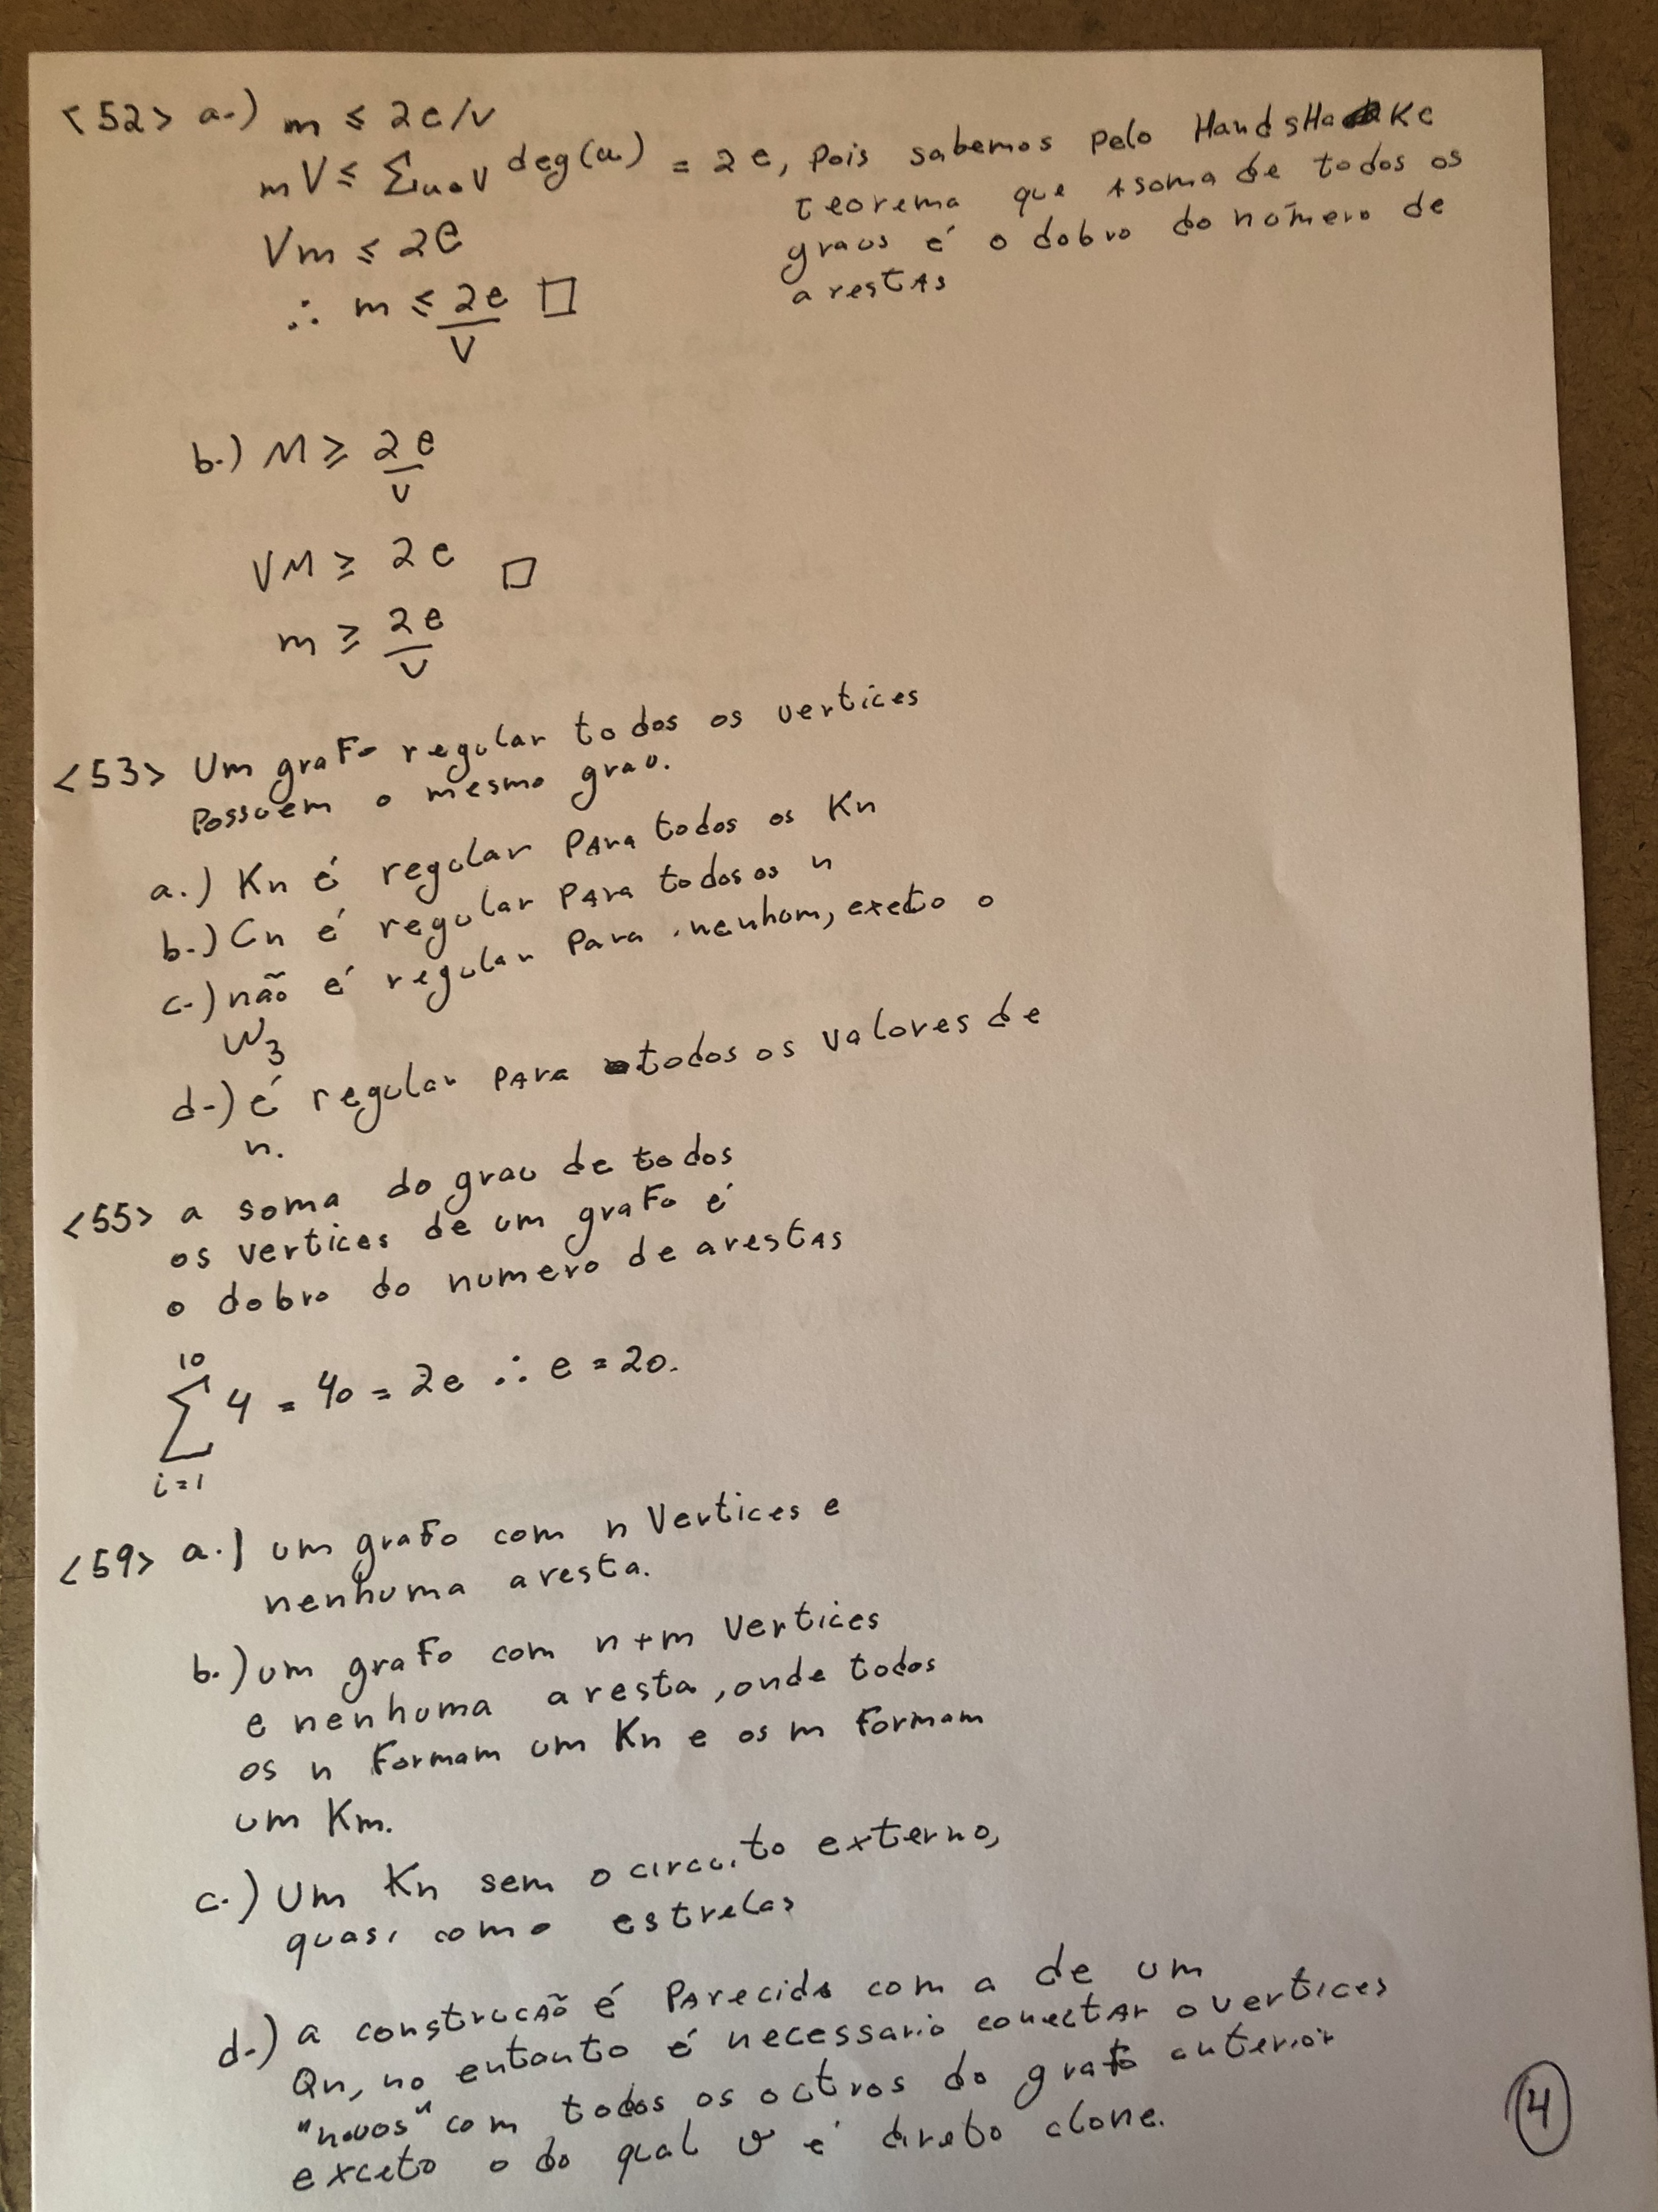 <52> a.) m ≤ 2e/v
mV ≤ Σu∈V deg(u) = 2e, pois sabemos pelo HandSHaKe
teorema que A soma de todos os
graus é o dobro do número de
arestAs
Vm ≤ 2e
∴ m ≤ 2e/V □
b.) M ≥ 2e/v
VM ≥ 2e □
m ≥ 2e/v
<53> Um grafo regular todos os vertices
possuem o mesmo grau.
a.) Kn é regular PAra todos os Kn
b.) Cn é regular PAra todos os n
c.) não é regular Para nenhum, exeto o
W3
d.) é regular PAra todos os valores de
n.
<55> a soma do grau de todos
os vertices de um grafo é
o dobro do numero de arestAs
10
∑ 4 = 40 = 2e ∴ e = 20.
i=1
<59> a.) um grafo com n Vertices e
nenhuma aresta.
b.) um grafo com n+m Vertices
e nenhuma aresta, onde todos
os n formam um Kn e os m formam
um Km.
c.) Um Kn sem o circuito externo,
quasi como estrelas
d.) a construcão é PArecida com a de um
Qn, no entanto é necessario conectAr o vertices
"novos" com todos os outros do grafo anterior
exceto o do qual v é direto clone.
4